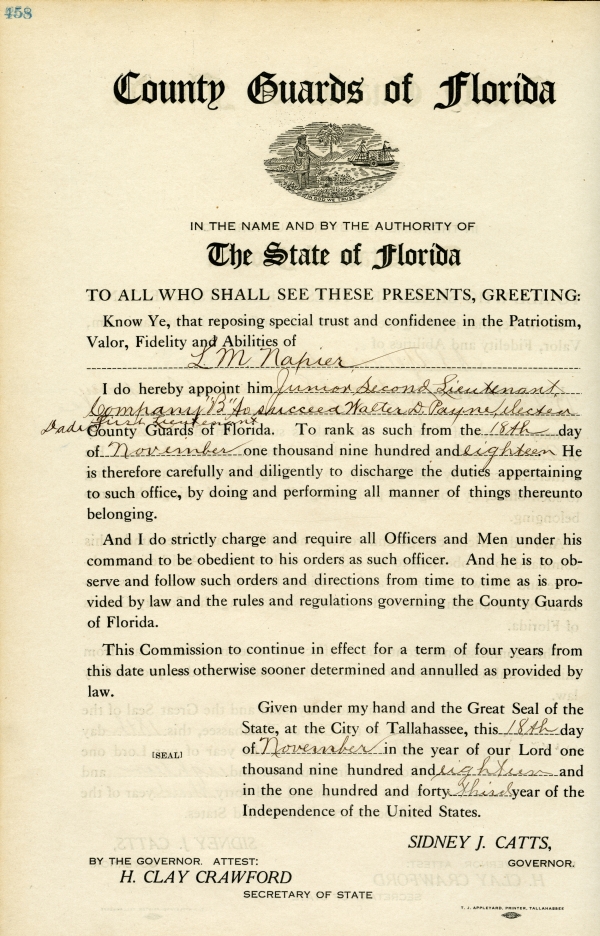 458
County Guards of Florida
IN GOD WE TRUST
IN THE NAME AND BY THE AUTHORITY OF
The State of Florida
TO ALL WHO SHALL SEE THESE PRESENTS, GREETING:
Know Ye, that reposing special trust and confidence in the Patriotism,
Valor, Fidelity and Abilities of
L M. Napier
I do hereby appoint him Junior Second Lieutenant,
Company "B" to succeed Walter D. Payne, elected
Dade First Lieutenant
County Guards of Florida. To rank as such from the 18th day
of November one thousand nine hundred and eighteen He
is therefore carefully and diligently to discharge the duties appertaining
to such office, by doing and performing all manner of things thereunto
belonging.
And I do strictly charge and require all Officers and Men under his
command to be obedient to his orders as such officer. And he is to ob-
serve and follow such orders and directions from time to time as is pro-
vided by law and the rules and regulations governing the County Guards
of Florida.
This Commission to continue in effect for a term of four years from
this date unless otherwise sooner determined and annulled as provided by
law.
Given under my hand and the Great Seal of the
State, at the City of Tallahassee, this 18th day
[SEAL] of November in the year of our Lord one
thousand nine hundred and eighteen and
in the one hundred and forty third year of the
Independence of the United States.
SIDNEY J. CATTS,
BY THE GOVERNOR. ATTEST: GOVERNOR.
H. CLAY CRAWFORD
SECRETARY OF STATE
T. J. APPLEYARD, PRINTER, TALLAHASSEE